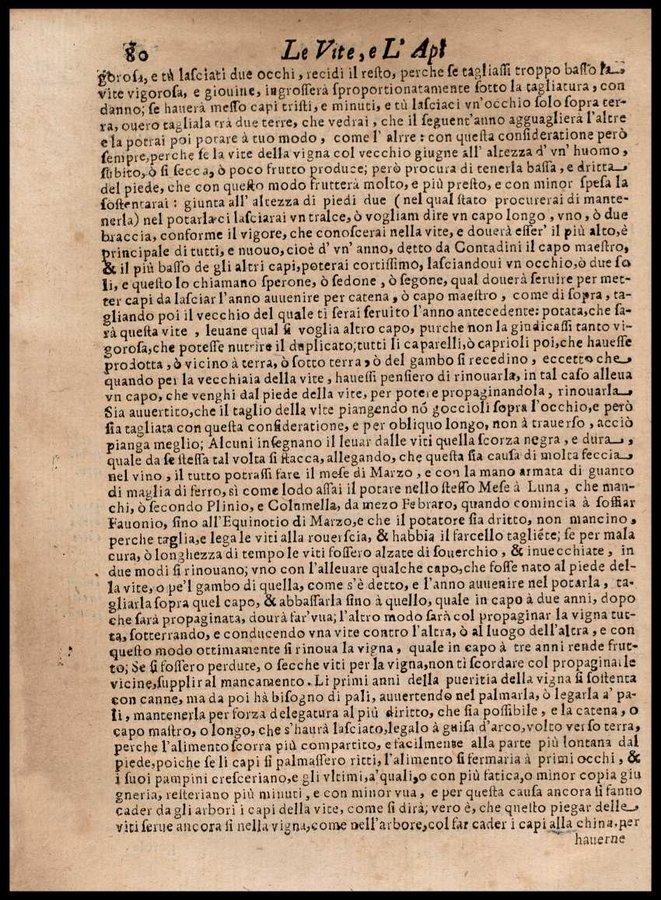 80 Le Vite, e L' Api
gorosa, e tù lasciati due occhi, recidi il resto, perche se tagliassi troppo basso la
vite vigorosa, e giouine, ingrosserà sproportionatamente sotto la tagliatura, con
danno; se hauerà messo capi tristi, e minuti, e tù lasciaci vn'occhio solo sopra ter-
ra, ouero tagliala trà due terre, che vedrai, che il seguent'anno agguaglierà l'altre
e la potrai poi potare à tuo modo, come l' altre: con questa consideratione però
sempre, perche se la vite della vigna col vecchio giugne all' altezza d' vn' huomo,
subito, ò si secca, ò poco frutto produce; però procura di tenerla bassa, e dritta
del piede, che con questo modo frutterà molto, e più presto, e con minor spesa la
sostentarai: giunta all' altezza di piedi due (nel qual stato procurerai di mante-
nerla) nel potarla ci lasciarai vn tralce, ò vogliam dire vn capo longo, vno, ò due
braccia, conforme il vigore, che conoscerai nella vite, e douerà esser' il più alto, è
principale di tutti, e nuouo, cioè d' vn' anno, detto da Contadini il capo maestro,
& il più basso de gli altri capi, poterai cortissimo, lasciandoui vn occhio, ò due so
li, e questo lo chiamano sperone, ò sedone, ò segone, qual douerà seruire per met-
ter capi da lasciar l'anno auuenire per catena, ò capo maestro, come di sopra, ta-
gliando poi il vecchio del quale ti serai seruito l'anno antecedente: potata, che sa-
rà questa vite, leuane qual si voglia altro capo, purche non la giudicassi tanto vi-
gorosa, che potesse nutrire il duplicato; tutti li caparelli, ò caprioli poi, che hauesse
prodotta, ò vicino à terra, ò sotto terra, ò del gambo si recedino, eccetto che
quando per la vecchiaia della vite, hauessi pensiero di rinouarla, in tal caso alleua
vn capo, che venghi dal piede della vite, per potere propaginandola, rinouarla
Sia auuertito, che il taglio della vite piangendo nō goccioli sopra l'occhio, e però
sia tagliata con questa consideratione, e per obliquo longo, non à trauerso, acciò
pianga meglio; Alcuni insegnano il leuar dalle viti quella scorza negra, e dura,
quale da se stessa tal volta si stacca, allegando, che questa sia causa di molta feccia
nel vino, il tutto potrassi fare il mese di Marzo, e con la mano armata di guanto
di maglia di ferro, sì come lodo assai il potare nello stesso Mese à Luna, che man-
chi, ò secondo Plinio, e Columella, da mezo Febraro, quando comincia à soffiar
Fauonio, sino all'Equinotio di Marzo, e che il potatore sia dritto, non mancino,
perche taglia, e lega le viti alla rouerscia, & habbia il farcello tagliēte; se per mala
cura, ò longhezza di tempo le viti fossero alzate di souerchio, & inuecchiate, in
due modi si rinouano; vno con l'alleuare qualche capo, che fosse nato al piede del-
la vite, o pe'l gambo di quella, come s'è detto, e l'anno auuenire nel potarla, ta-
gliarla sopra quel capo, & abbassarla sino à quello, quale in capo à due anni, dopo
che sarà propaginata, dourà far vua; l'altro modo sarà col propaginar la vigna tut-
ta, sotterrando, e conducendo vna vite contro l'altra, ò al luogo dell'altra, e con
questo modo ottimamente si rinoua la vigna, quale in capo à tre anni rende frut-
to; Se si fossero perdute, o secche viti per la vigna, non ti scordare col propaginar le
vicine, supplir al mancamento. Li primi anni della pueritia della vigna si sostenta
con canne, ma da poi hà bisogno di pali, auuertendo nel palmarla, ò legarla a' pa-
li, mantenerla per forza delegatura al più diritto, che sia possibile, e la catena, o
capo mastro, o longo, che s'haurà lasciato, legalo à guisa d'arco, volto verso terra,
perche l'alimento scorra più compartito, e facilmente alla parte più lontana dal
piede, poiche se li capi si palmassero ritti, l'alimento si fermaria à primi occhi, &
i suoi pampini cresceriano, e gli vltimi, a' quali, o con più fatica, o minor copia giu
gneria, resteriano più minuti, e con minor vua, e per questa causa ancora si fanno
cader da gli arbori i capi della vite, come si dirà; vero è, che questo piegar delle
viti serue ancora sì nella vigna, come nell'arbore, col far cader i capi alla china, per
hauerne